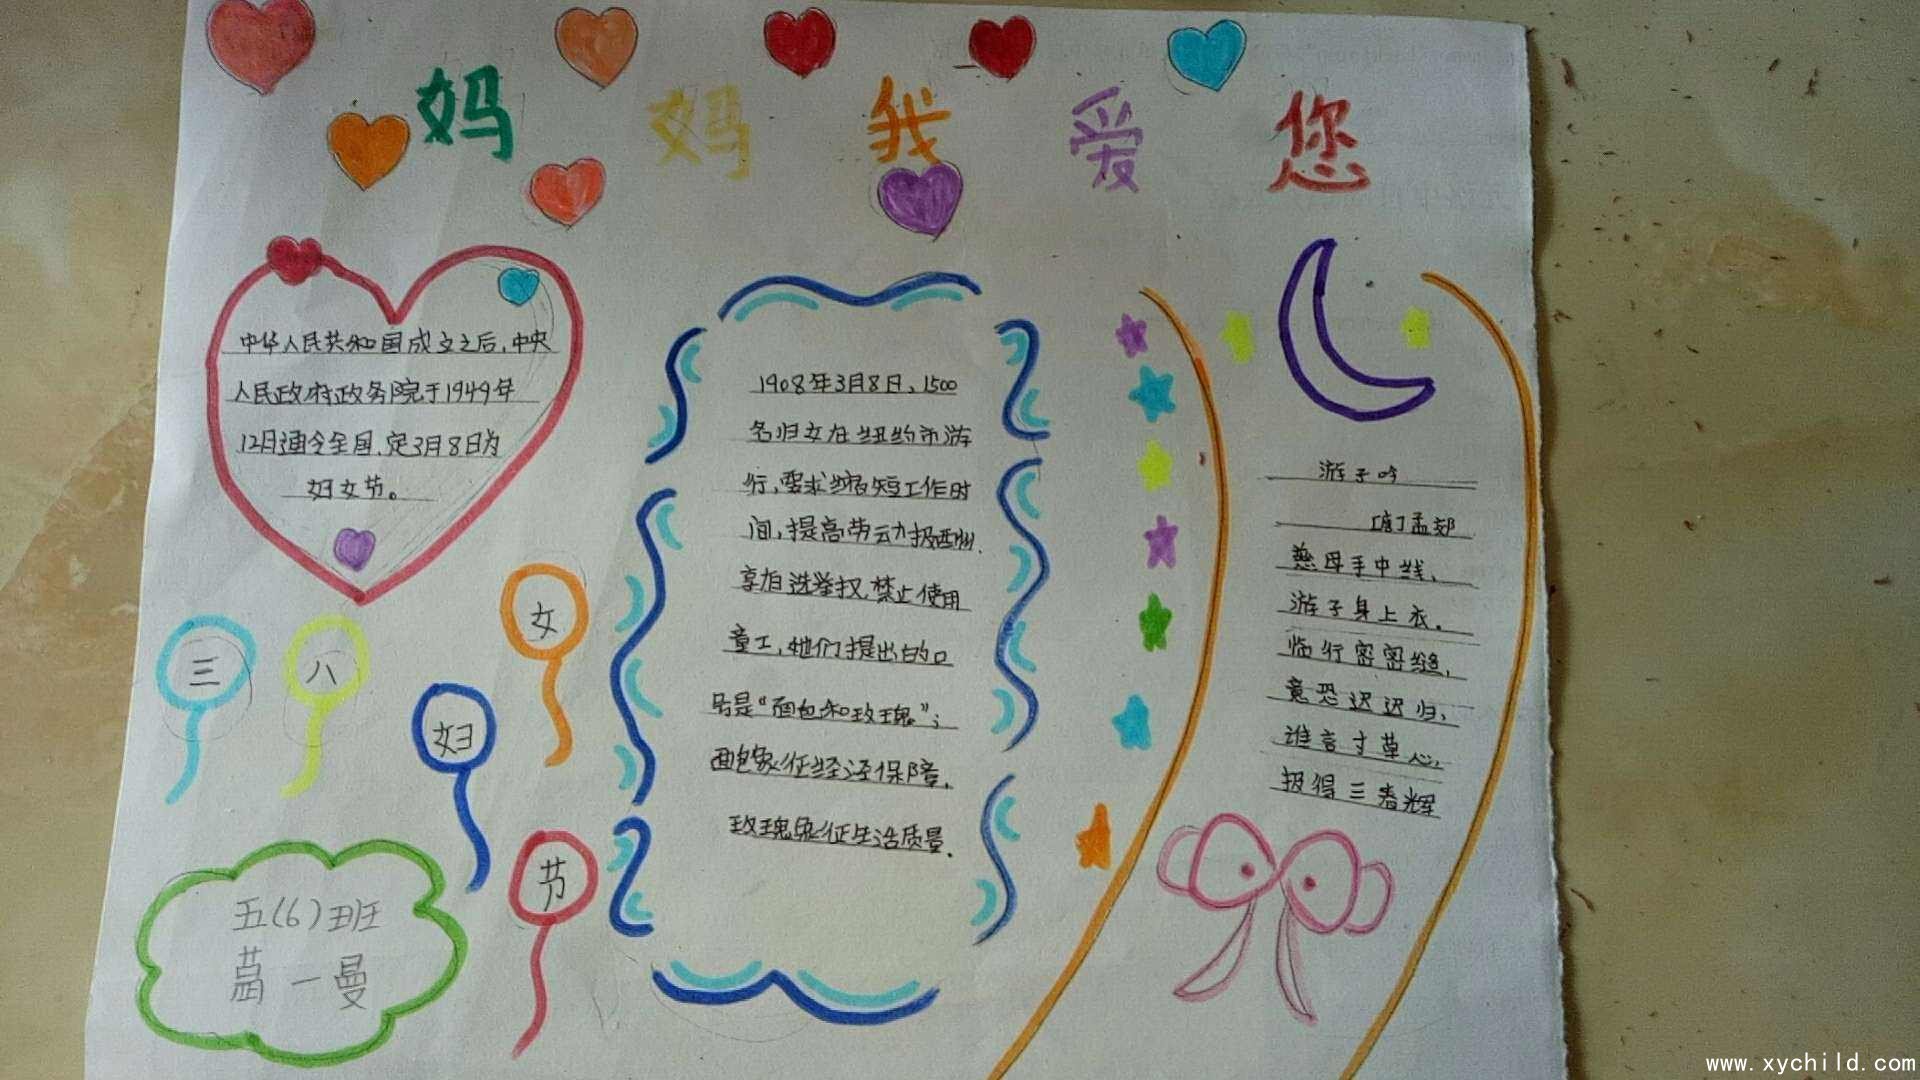 妈妈我爱您
中华人民共和国成立之后,中央
人民政府政务院于1949年
12月通令全国,定3月8日为
妇女节。
三八妇女节
五(6)班
一曼
1908年3月8日,1500
名妇女在纽约市游
行,要求缩短工作时
间,提高劳动报酬,
享有选举权,禁止使用
童工,她们提出的口
号是“面包和玫瑰”;
面包象征经济保障,
玫瑰象征生活质量.
游子吟
[唐]孟郊
慈母手中线,
游子身上衣。
临行密密缝,
意恐迟迟归,
谁言寸草心,
报得三春辉
www.xychild.com